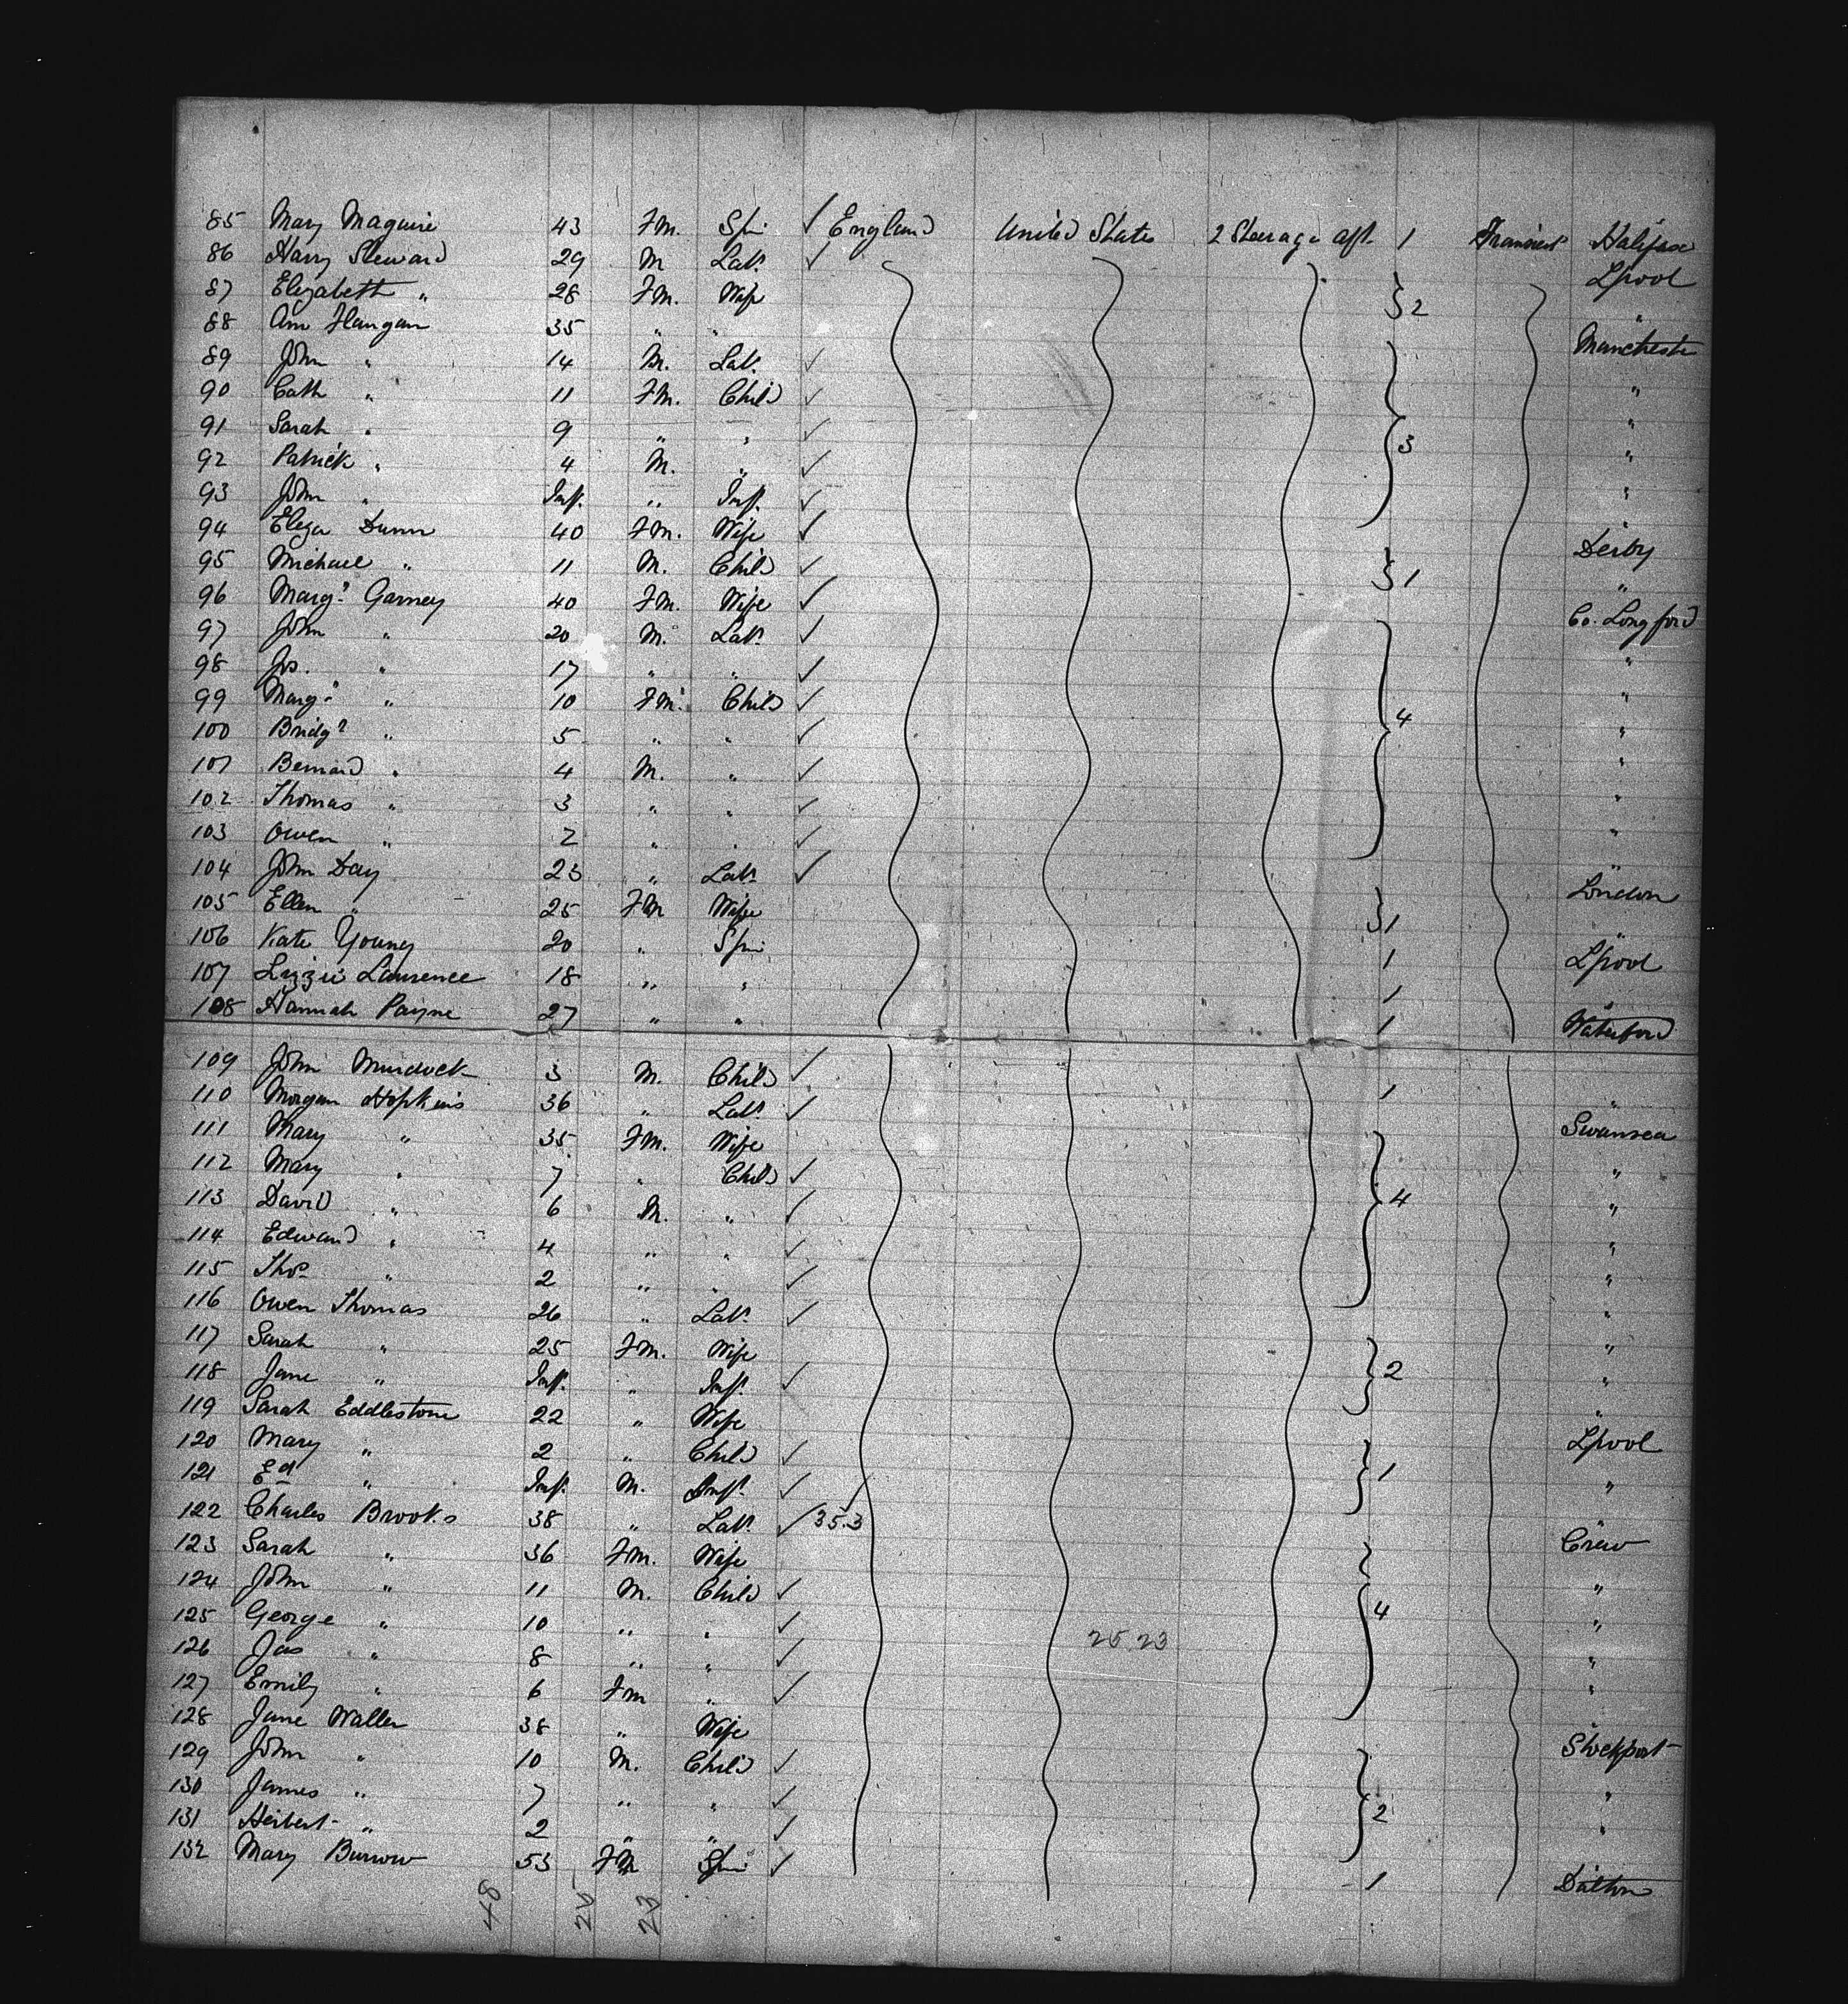 85 Mary Maguire 43 Fm. Spr ✓ England United States 2 Steerage aft 1 Transient Halifax
86 Harry Steward 29 M Labr ✓ Lpool
87 Elizabeth " 28 Fm. Wife } 2 "
88 Ann Flangan 35 " " Manchester
89 John " 14 M. Labr ✓ "
90 Cath " 11 Fm. Child ✓ "
91 Sarah " 9 " " ✓ } 3 "
92 Patrick " 4 M. " ✓ "
93 John " Inft. " Inft. ✓ "
94 Eliza Dunn 40 Fm. Wife ✓ Derby
95 Michael " 11 M. Child ✓ } 1 "
96 Margt Garney 40 Fm. Wife ✓ Co. Longford
97 John " 20 M. Labr ✓ "
98 Jos. " 17 " " ✓ "
99 Margt " 10 Fm. Child ✓ } 4 "
100 Bridgt " 5 " " ✓ "
101 Bernard " 4 M. " ✓ "
102 Thomas " 3 " " ✓ "
103 Owen " 2 " " ✓ "
104 John Day 23 " Labr ✓ London
105 Ellen " 25 Fm Wife } 1 "
106 Kate Young 20 " Spr 1 Lpool
107 Lizzie Laurence 18 " " 1 "
108 Hannah Payne 27 " " 1 Waterford
109 John Murdock 3 M. Child ✓ 1 "
110 Morgan Hopkins 36 " Labr ✓ Swansea
111 Mary " 35 Fm. Wife "
112 Mary " 7 " Child ✓ } 4 "
113 David " 6 M. " ✓ "
114 Edward " 4 " " ✓ "
115 Thos " 2 " " ✓ "
116 Owen Thomas 26 " Labr ✓ "
117 Sarah " 25 Fm. Wife } 2 "
118 Jane " Inft. " Inft. ✓ "
119 Sarah Eddlestone 22 " Wife Lpool
120 Mary " 2 " Child ✓ } 1 "
121 Ed " Inft. M. Inft. ✓ "
122 Charles Brooks 38 " Labr ✓ 35.3 Crew
123 Sarah " 36 Fm. Wife "
124 John " 11 M. Child ✓ } 4 "
125 George " 10 " " ✓ "
126 Jas " 8 " " ✓ 25 23 "
127 Emily " 6 Fm " ✓ "
128 Jane Waller 38 " Wife Stockport
129 John " 10 M. Child ✓ "
130 James " 7 " " ✓ } 2 "
131 Herbert " 2 " " ✓ "
132 Mary Burrow 53 Fm Spr ✓ 1 Dalton
48 25 23